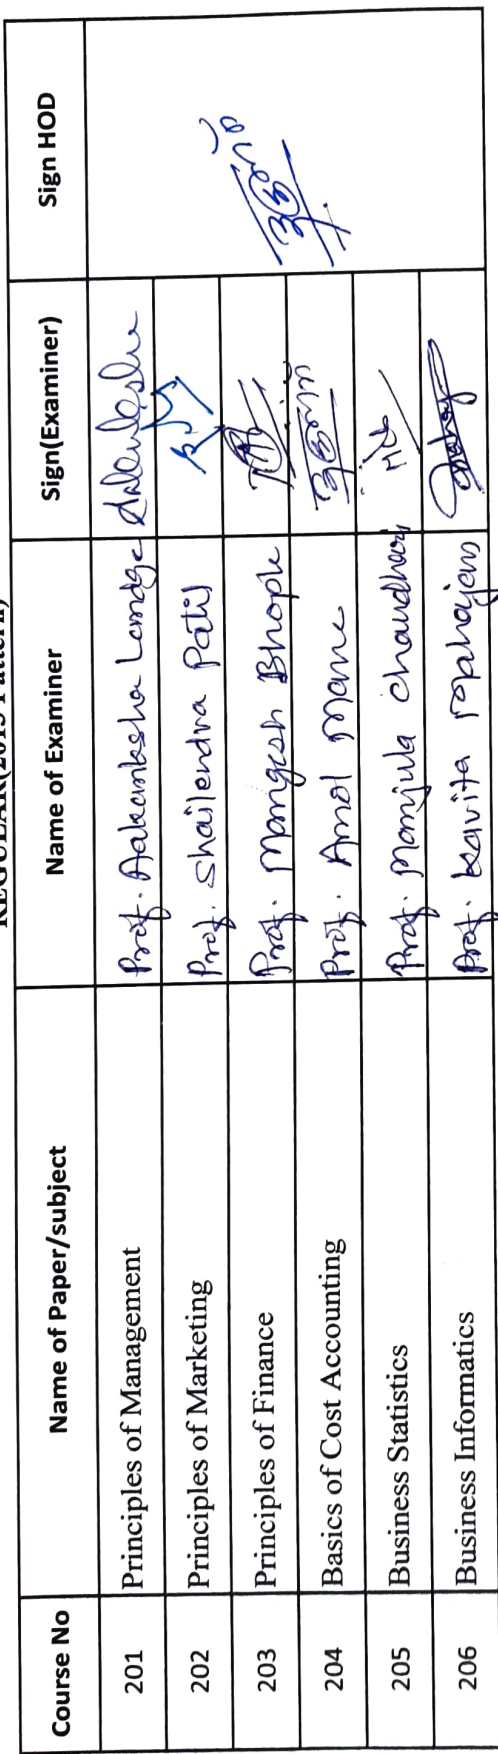 REGULAR(2013 Pattern)
Course No Name of Paper/subject Name of Examiner Sign(Examiner) Sign HOD
201 Principles of Management Prof. Aakanksha Landge
202 Principles of Marketing Prof. Shailendra Patil
203 Principles of Finance Prof. Mangesh Bhople
204 Basics of Cost Accounting Prof. Amol Mane
205 Business Statistics Prof. Manjula Chaudhary
206 Business Informatics Prof. Kavita Mahajan